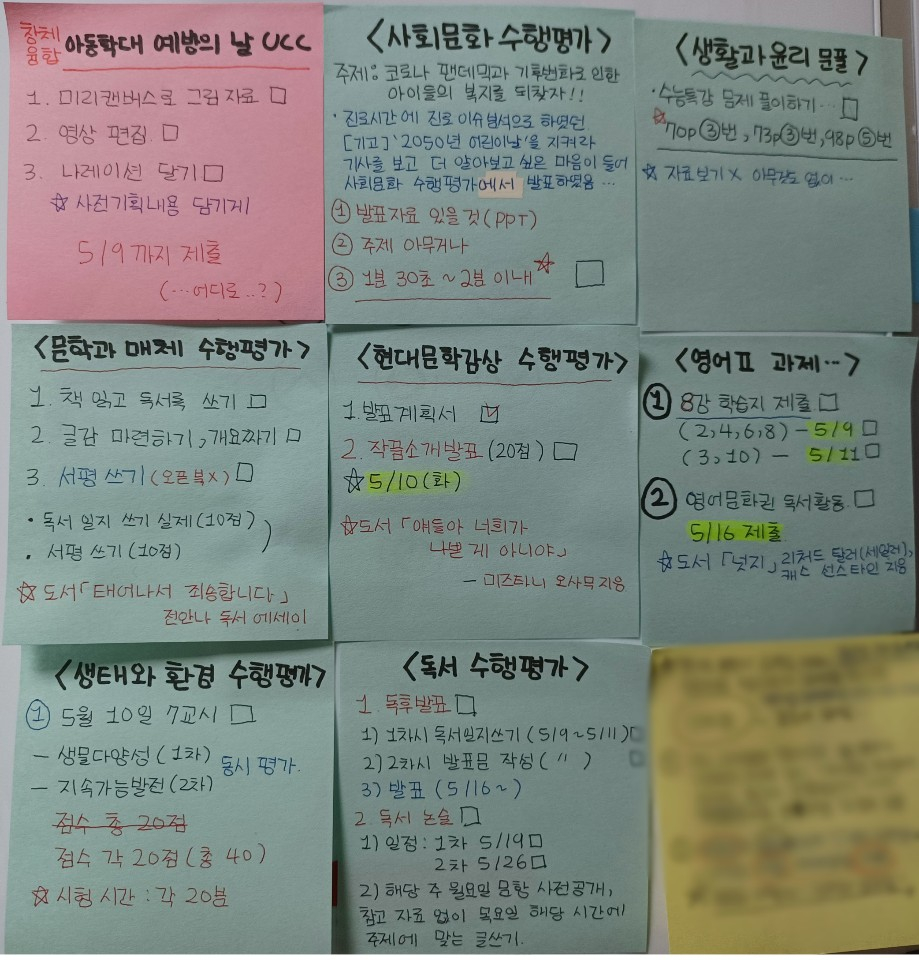 창체
융합
아동학대 예방의 날 UCC
1. 미리캔버스로 그림자료 □
2. 영상 편집 □
3. 나레이션 달기 □
☆ 사전기획내용 담기게
5/9 까지 제출
(…어디로..?)
<사회문화 수행평가>
주제: 코로나 팬데믹과 기후변화로 인한
아이들의 복지를 되찾자!!
· 진로시간에 진로 이슈분석으로 하였던
[기고] '2050년 어린이날'을 지켜라
기사를 보고 더 알아보고 싶은 마음이 들어
사회문화 수행평가에서 발표하였음…
① 발표자료 있을 것(PPT)
② 주제 아무거나
③ 1분 30초 ~ 2분 이내 ☆ □
<생활과 윤리 문풀>
· 수능특강 문제 풀이하기… □
☆ 70p ③번, 73p ③번, 98p ⑤번
☆ 자료보기 X 아무것도 없이…
<문학과 매체 수행평가>
1. 책 읽고 독서록 쓰기 □
2. 글감 마련하기, 개요짜기 □
3. 서평 쓰기(오픈북X) □
• 독서 일지 쓰기 실제(10점)
• 서평 쓰기(10점)
☆ 도서「태어나서 죄송합니다」
전안나 독서 에세이
<현대문학감상 수행평가>
1. 발표계획서 ☑
2. 작품소개발표(20점) □
☆ 5/10(화)
☆ 도서「얘들아 너희가
나쁜 게 아니야」
- 미즈타니 오사무 지음
<영어표 과제…>
① 8강 학습지 제출 □
(2,4,6,8) - 5/9 □
(3,10) - 5/11 □
② 영어문화권 독서활동 □
5/16 제출
☆ 도서「넛지」리처드 탈러(세일러),
캐스 선스타인 지음
<생태와 환경 수행평가>
① 5월 10일 7교시 □
- 생물다양성(1차)
- 지속가능발전(2차)
동시 평가.
점수 총 20점
점수 각 20점(총 40)
☆ 시험 시간 : 각 20분
<독서 수행평가>
1. 독후발표 □
1) 1차시 독서일지쓰기(5/9~5/11) □
2) 2차시 발표문 작성( " ) □
3) 발표(5/16~)
2. 독서 논술 □
1) 일정: 1차 5/19 □
2차 5/26 □
2) 해당 주 월요일 문항 사전공개,
참고 자료 없이 목요일 해당 시간에
주제에 맞는 글쓰기.